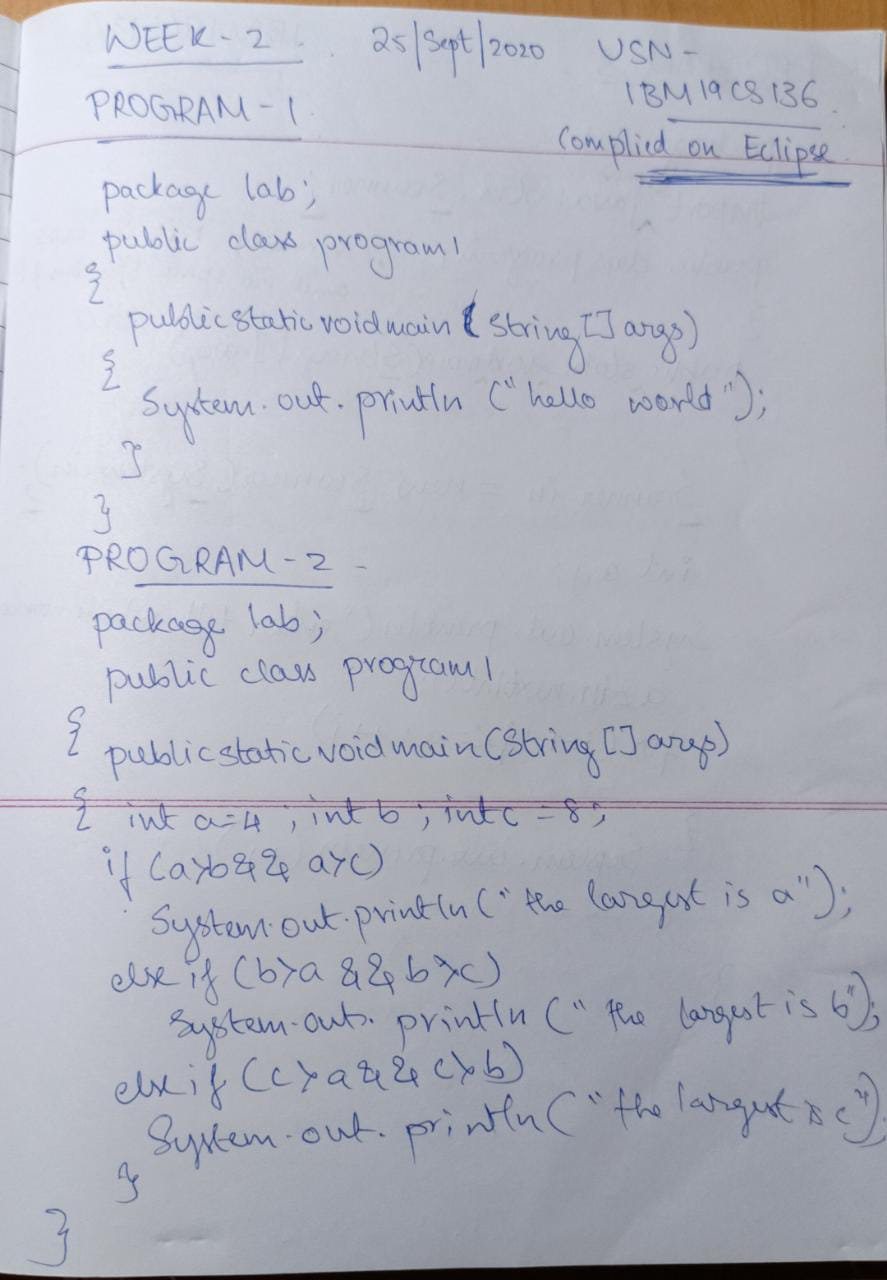 WEEK-2 25/Sept/2020 USN-
1BM19CS136
PROGRAM-1
Complied on Eclipse
package lab;
public class program1
{
public static void main (String[] args)
{
System.out.println ("hello world");
}
}
PROGRAM-2 -
package lab;
public class program1
{ public static void main (String [] args)
{ int a=4 ; int b ; int c = 8;
if (a>b && a>c)
System.out.println (" the largest is a");
else if (b>a && b>c)
System.out. println (" the largest is b");
else if (c>a && c>b)
System.out. println (" the largest is c");
}
}